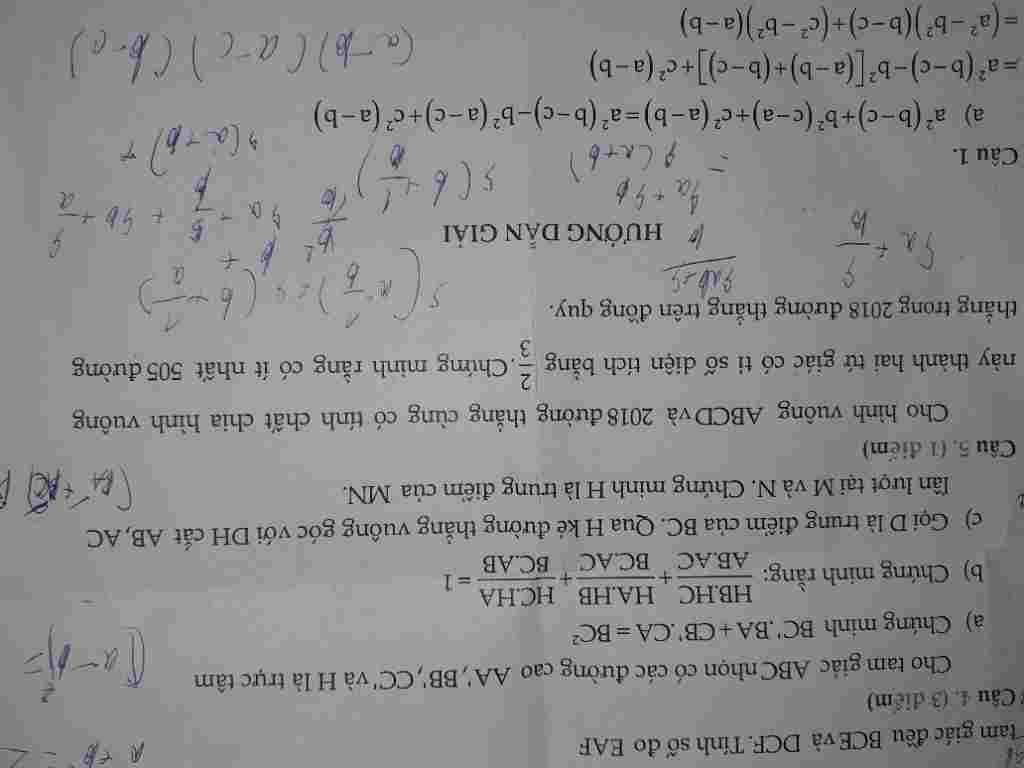 tam giác đều BCE và DCF. Tính số đo EAF
Câu 4. (3 điểm)
Cho tam giác ABC nhọn có các đường cao AA', BB', CC' và H là trực tâm
a) Chứng minh BC'.BA + CB'.CA = BC²
b) Chứng minh rằng: HB.HC/AB.AC + HA.HB/BC.AC + HC.HA/BC.AB = 1
c) Gọi D là trung điểm của BC. Qua H kẻ đường thẳng vuông góc với DH cắt AB, AC
lần lượt tại M và N. Chứng minh H là trung điểm của MN.
Câu 5. (1 điểm)
Cho hình vuông ABCD và 2018 đường thẳng cùng có tính chất chia hình vuông
này thành hai tứ giác có tỉ số diện tích bằng 2/3. Chứng minh rằng có ít nhất 505 đường
thẳng trong 2018 đường thẳng trên đồng quy.
HƯỚNG DẪN GIẢI
Câu 1.
a) a²(b−c)+b²(c−a)+c²(a−b)=a²(b−c)−b²(a−c)+c²(a−b)
=a²(b−c)−b²[(a−b)+(b−c)]+c²(a−b)
=(a²−b²)(b−c)+(c²−b²)(a−b)
(a-b)(a-c)(b-c)